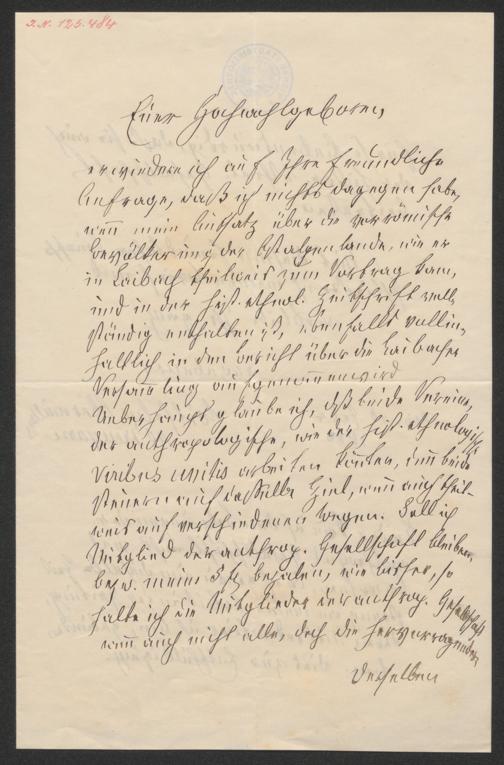 J.N. 125.484
Euer Hochwohlgeboren,
erwidere ich auf Ihre freundliche
Anfrage, daß ich nichts dagegen habe,
wenn mein Aufsatz über die vorrömische
Bevölkerung der Ostalpenlande, wie er
in Laibach theilweis zum Vortrag kam,
und in der hist. ethnol. Zeitschrift voll
ständig enthalten ist, ebenfalls vollin-
haltlich in den Bericht über die Laibacher
Versammlung aufgenommen wird
Ueberhaupt glaube ich, daß beide Vereine,
der anthropologische, wie der hist. ethnologische
viribus unitis arbeiten könnten, denn beide
steuern auf dasselbe Ziel, wenn auch theil-
weis auf verschiedenen Wegen. Soll ich
Mitglied der anthrop. Gesellschaft bleiben,
bezw. meine 5 fl bezalen, wie bisher, so
halte ich die Mitglieder der anthrop. Gesellschaft
wenn auch nicht alle, doch die hervorragenden
derselben